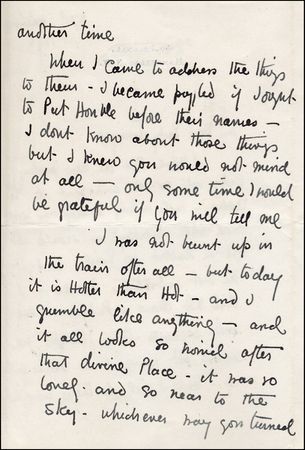 another time
When I came to address the things
to them - I became puzzled if I ought
to Put Honble before their names -
I dont know about those things
but I knew you would not mind
at all - only some time I would
be grateful if you will tell me
I was not burnt up in
the train after all - but today
it is Hotter than Hot - and I
grumble like anything - and
it all looks so horrid after
that divine Place - it was so
lovely and so near to the
Sky - whichever way you turned